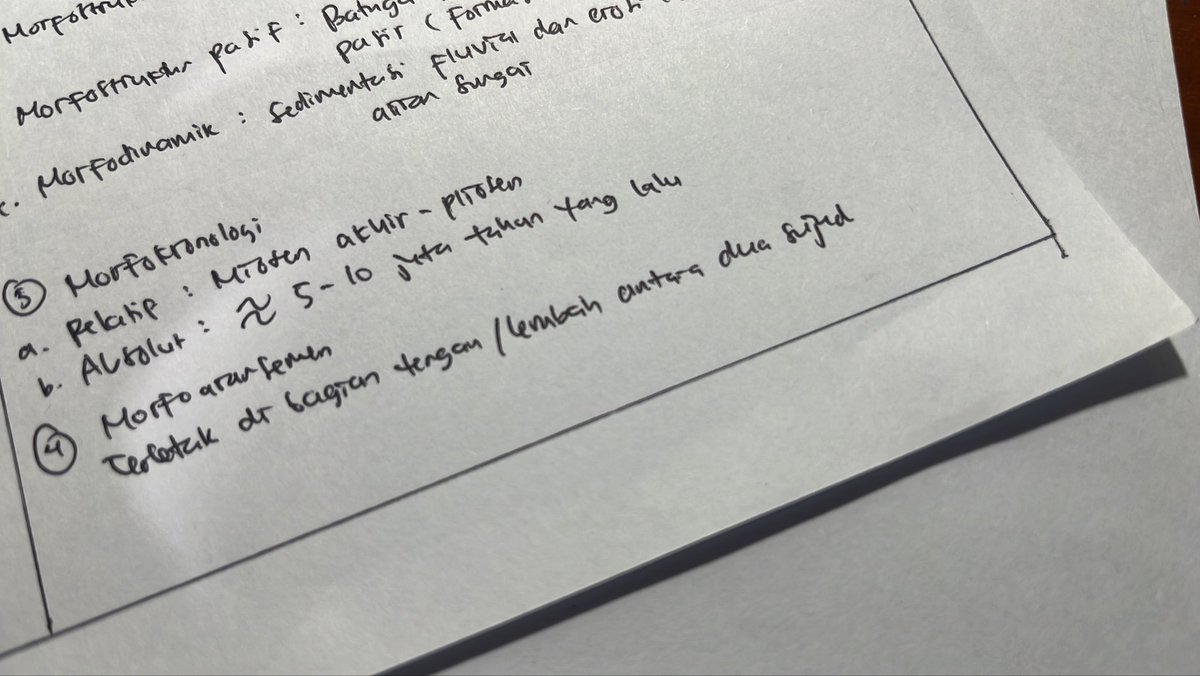 Morfostruk
Morfostruktur pasif : Batuga
pasir ( Forma
c. Morfodinamik : Sedimentasi fluvial dan erosi
aliran sungai
③ Morfokronologi
a. Relatif : Miosen akhir - pliosen
b. Absolut : ≈ 5 - 10 juta tahun yang lalu
④ Morfoaransemen
Terletak di bagian tengah / lembah antara dua